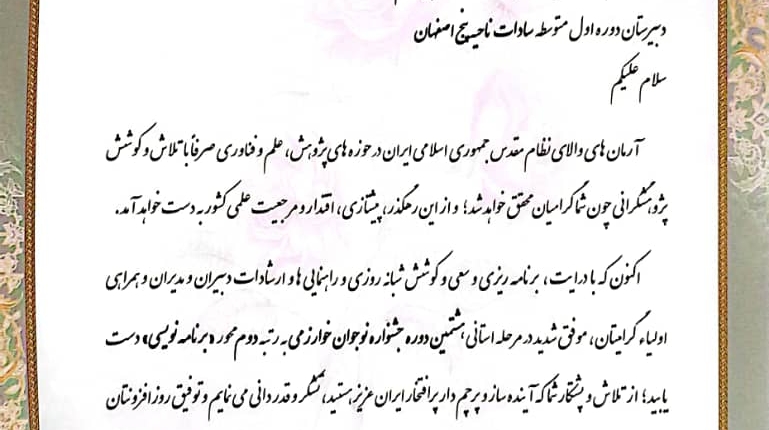 دبیرستان دوره اول متوسطه سادات ناحیه پنج اصفهان
سلام علیکم
آرمان های والای نظام مقدس جمهوری اسلامی ایران در حوزه های پژوهش، علم و فناوری صرفاً با تلاش و کوشش
پژوهشگرانی چون شما گرامیان محقق خواهد شد؛ و از این رهگذر، پیشتازی، اقتدار و مرجعیت علمی کشور به دست خواهد آمد.
اکنون که با درایت، برنامه ریزی و سعی و کوشش شبانه روزی و راهنمایی ها و ارشادات دبیران و مدیران و همراهی
اولیاء گرامیتان، موفق شدید در مرحله استانی هشتمین دوره جشنواره نوجوان خوارزمی به رتبه دوم محور «برنامه نویسی» دست
یابید؛ از تلاش و پشتکار شما که آینده ساز و پرچم دار پرافتخار ایران عزیز هستید، تشکر و قدردانی می نمایم و توفیق روزافزونتان